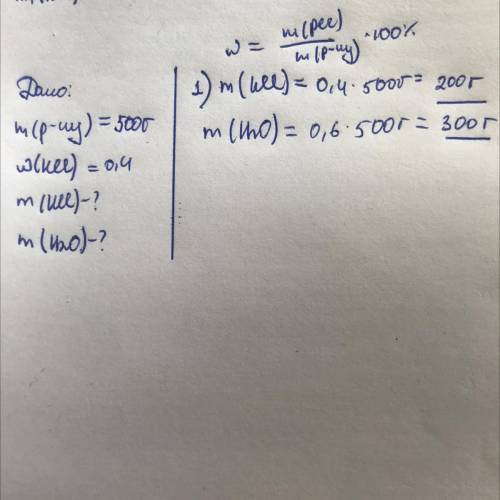 w = m(реч)/m(р-ну) · 100%
Дано:
m(р-ну) = 500г
w(HCl) = 0,4
m(HCl) - ?
m(H2O) - ?
1) m(HCl) = 0,4 · 500г = 200г
m(H2O) = 0,6 · 500г = 300г